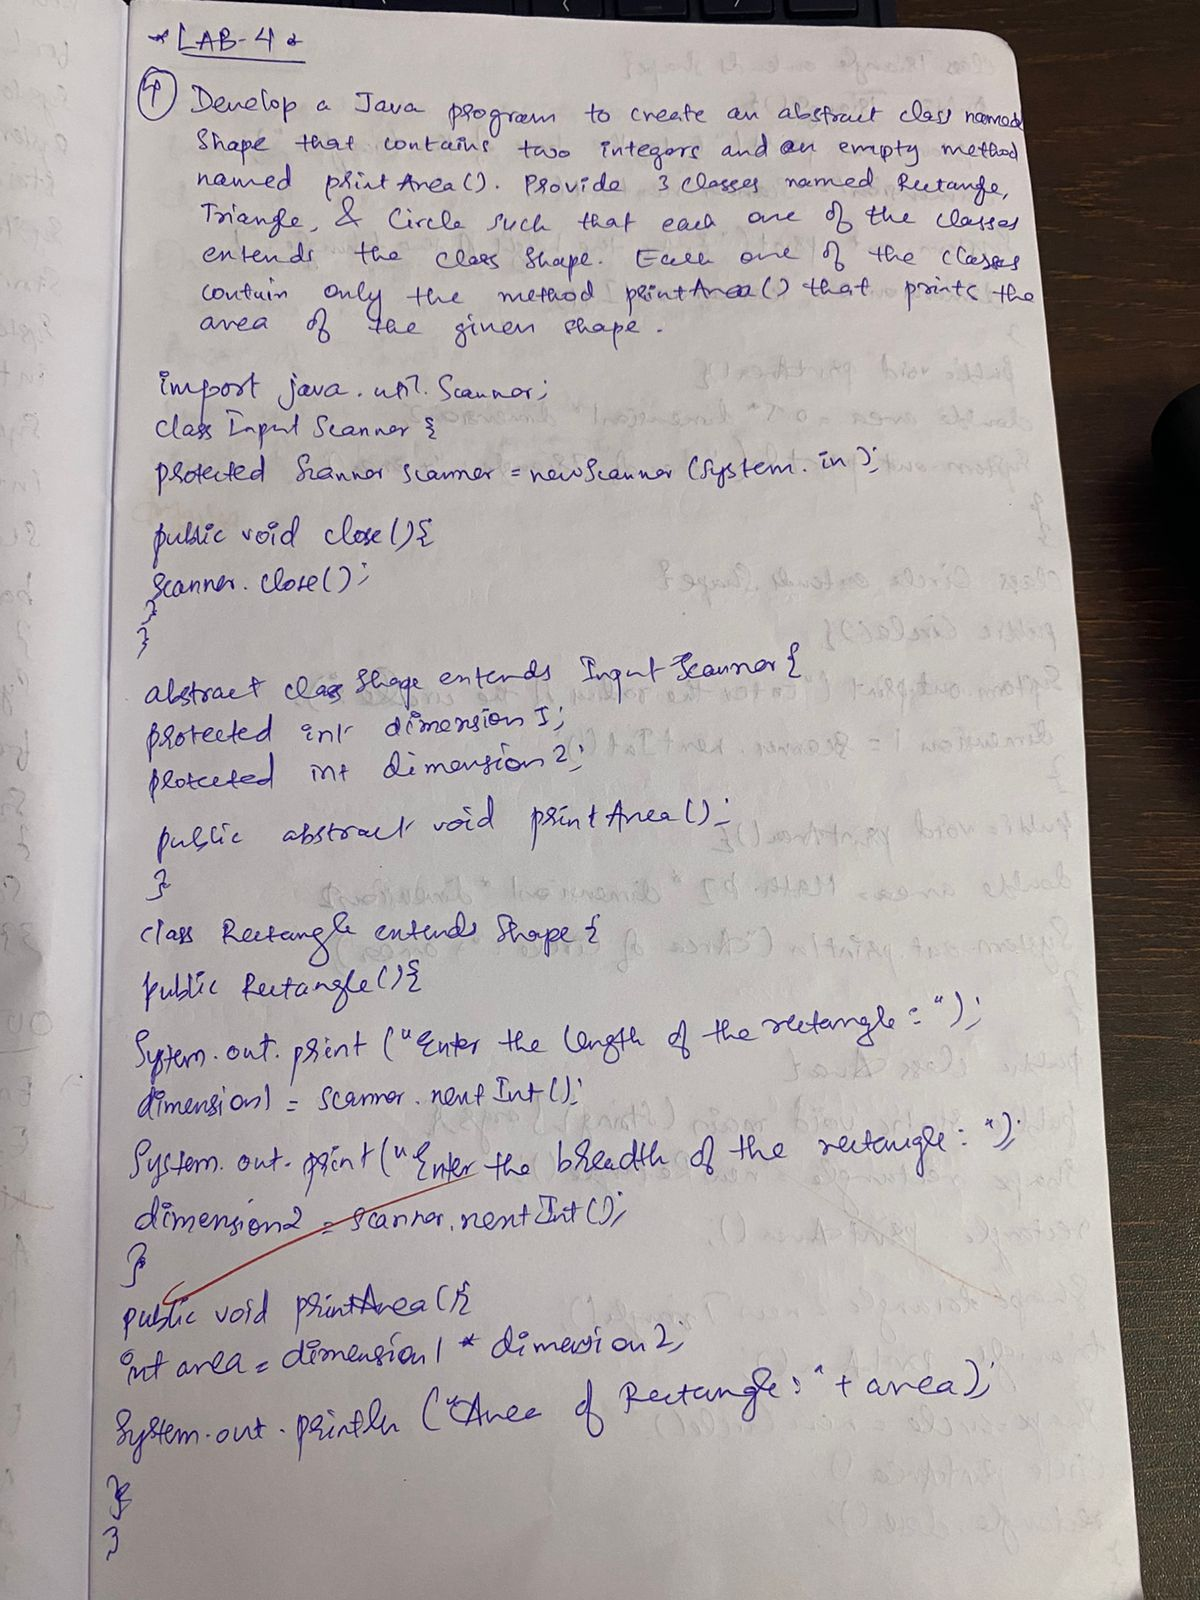 * LAB-4 *
4 Develop a Java program to create an abstract class named
Shape that contains two integers and an empty method
named printArea(). Provide 3 classes named Rectangle,
Triangle, & Circle such that each one of the classes
extends the class Shape. Each one of the classes
contain only the method printArea() that prints the
area of the given shape.
import java.util.Scanner;
class InputScanner {
protected Scanner scanner = new Scanner (System.in);
public void close(){
scanner.close();
}
}
abstract class Shape extends InputScanner {
protected int dimension1;
protected int dimension2;
public abstract void printArea();
}
class Rectangle extends Shape {
public Rectangle(){
System.out.print ("Enter the length of the rectangle: ");
dimension1 = scanner.nextInt();
System.out.print ("Enter the breadth of the rectangle: ");
dimension2 = scanner.nextInt();
}
public void printArea(){
int area = dimension1 * dimension2;
System.out.println ("Area of Rectangle: " + area);
}
}